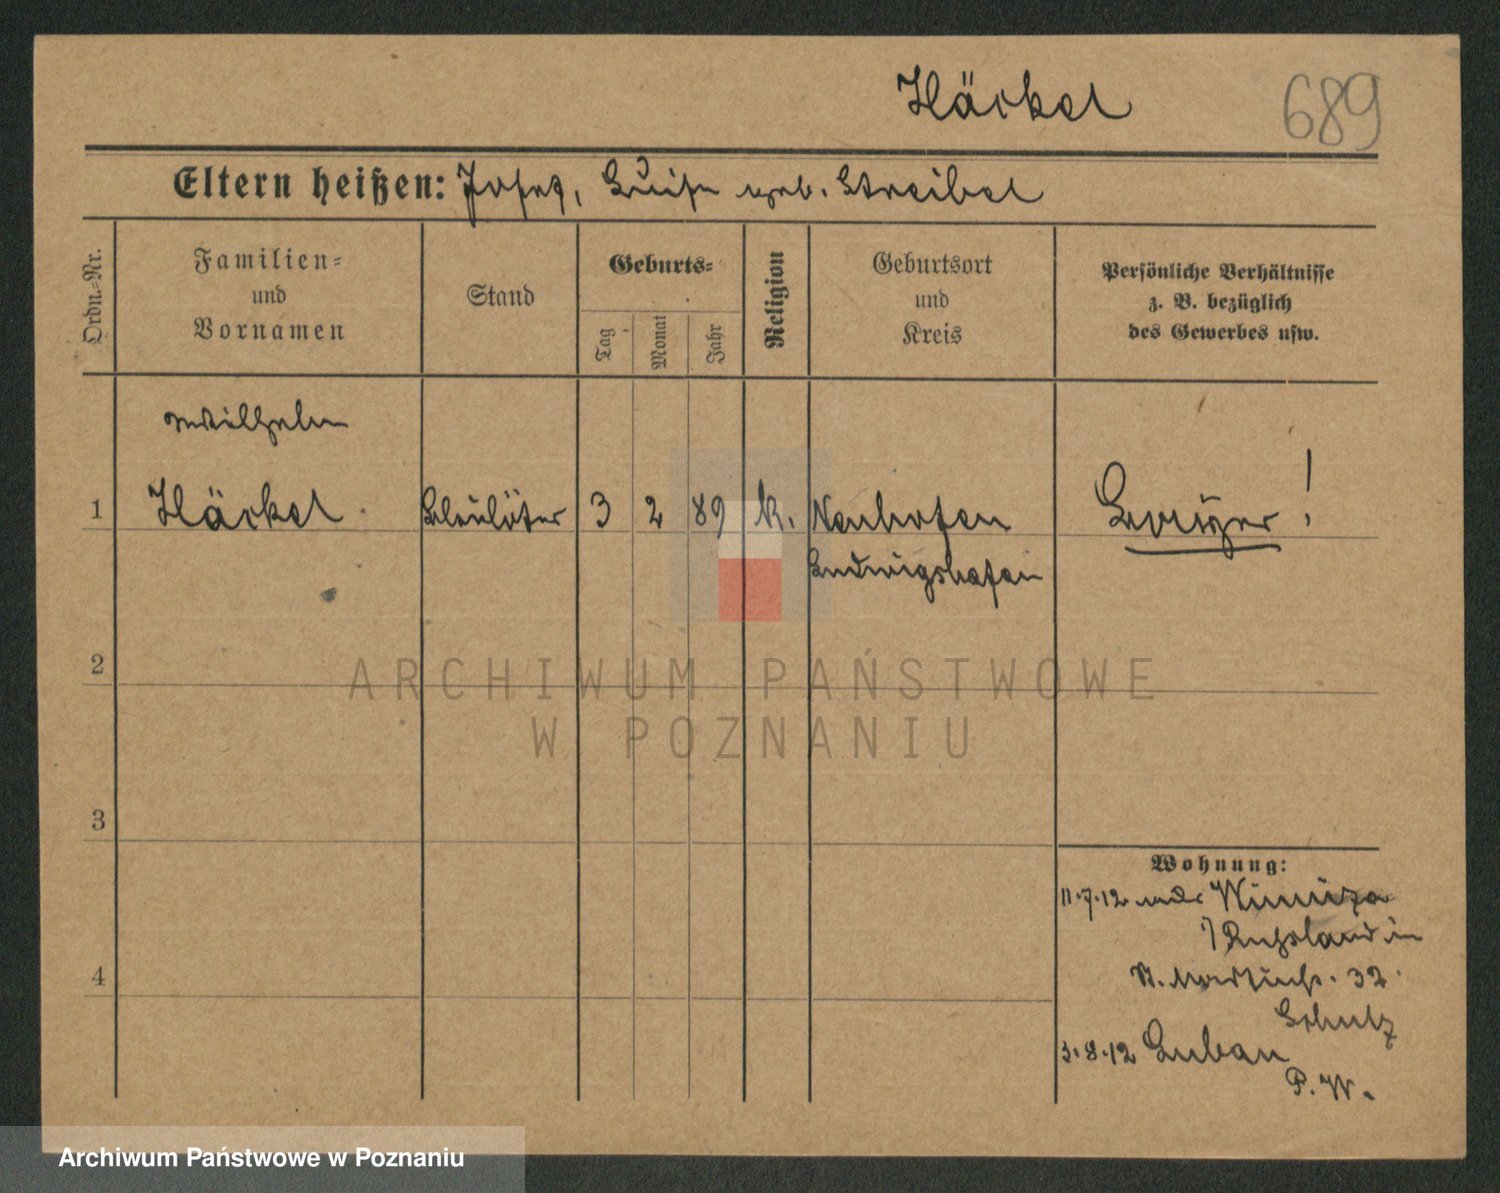 Häckel
689
Eltern heißen: Josef, Luise geb. Streibel
Ordn.-Nr.
Familien-
und
Vornamen
Stand
Geburts-
Tag
Monat
Jahr
Religion
Geburtsort
und
Kreis
Persönliche Verhältnisse
z. B. bezüglich
des Gewerbes usw.
Wilhelm
1 Häckel 3 2 89 k. Neuhofen !
Ludwigshafen
2
3
4
Wohnung:
11.7.12
Rußland in
St. Martinstr. 32
Schulz
3.8.12 Luban
P. W.
ARCHIWUM PAŃSTWOWE
W POZNANIU
Archiwum Państwowe w Poznaniu